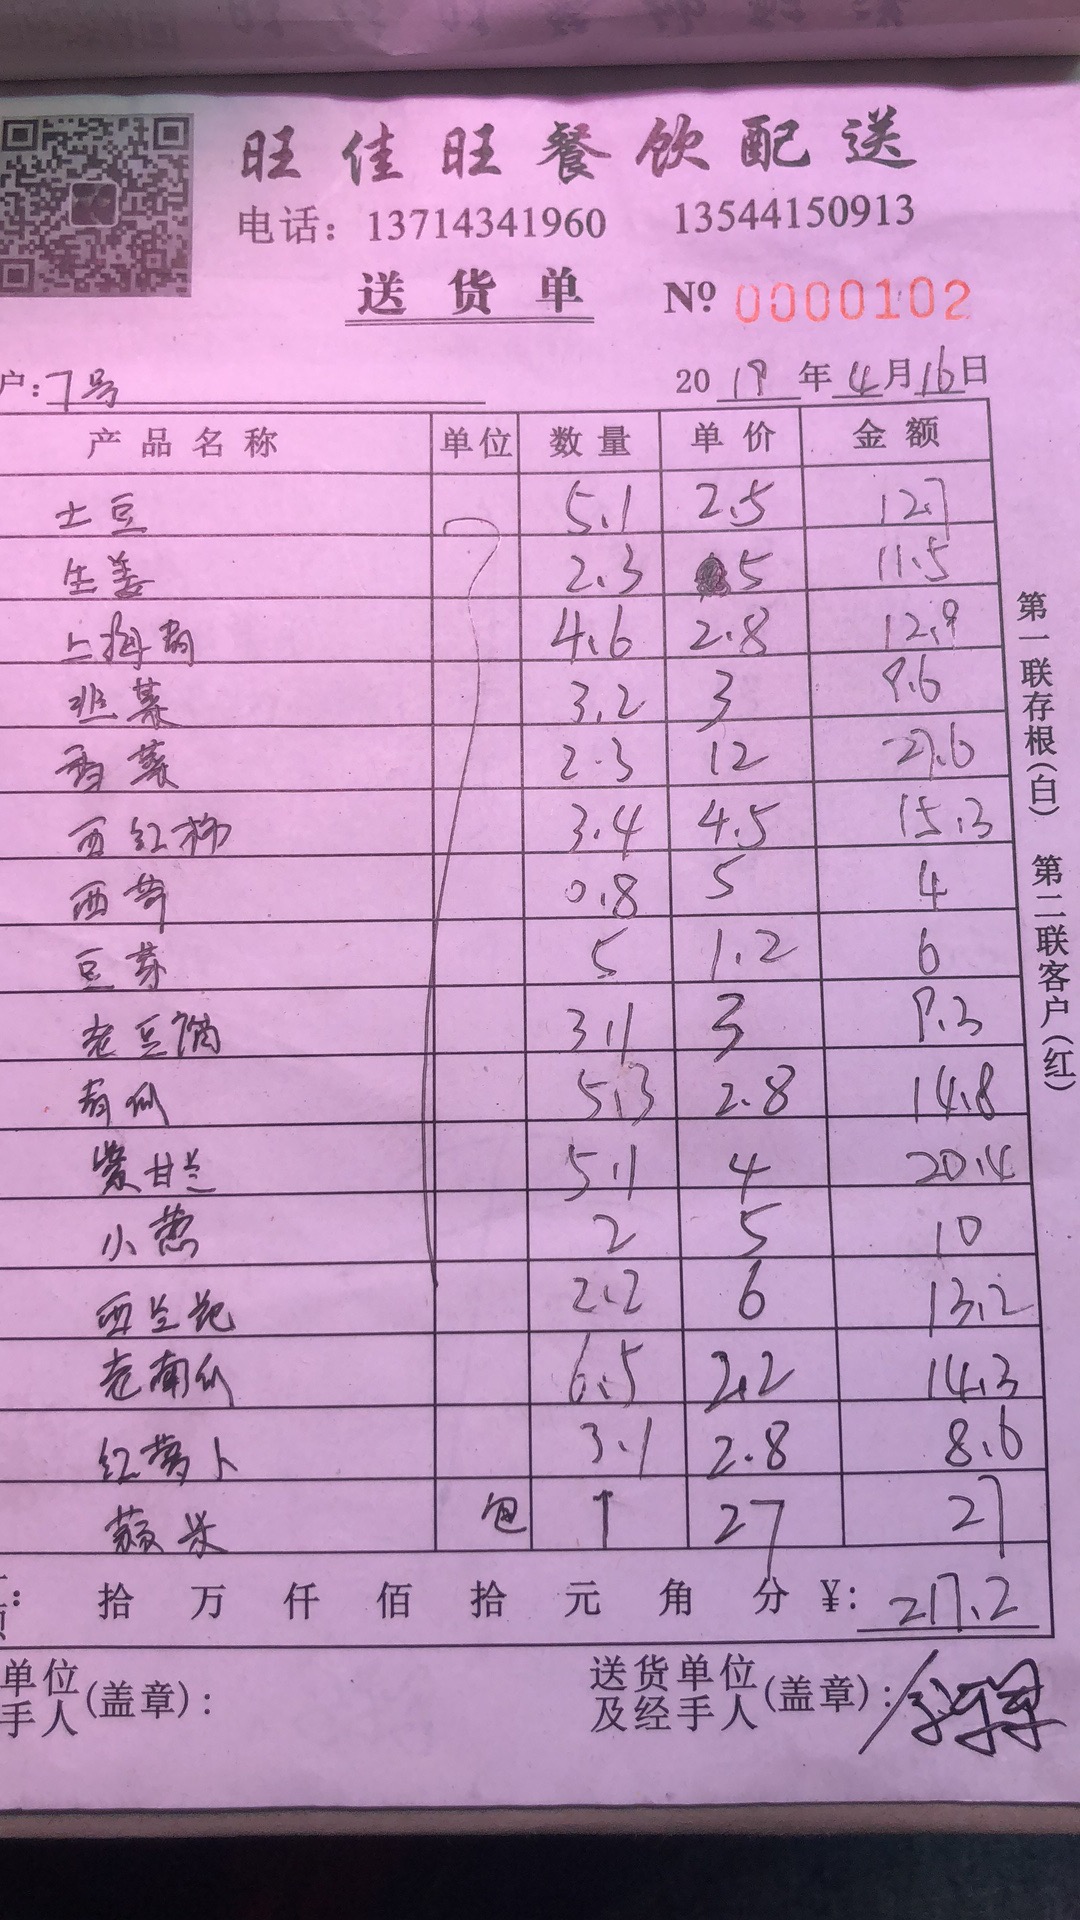 旺佳旺餐饮配送
电话：13714341960 13544150913
送货单 № 0000102
户：7号 2019年4月16日
产品名称 单位 数量 单价 金额
土豆 5.1 2.5 12.7
生姜 2.3 5 11.5
上海青 4.6 2.8 12.9
韭菜 3.2 3 9.6
香菜 2.3 12 27.6
西红柿 3.4 4.5 15.3
西芹 0.8 5 4
豆芽 5 1.2 6
老豆腐 3.1 3 9.3
青瓜 5.3 2.8 14.8
紫甘兰 5.1 4 20.4
小葱 2 5 10
西兰花 2.2 6 13.2
老南瓜 6.5 2.2 14.3
红萝卜 3.1 2.8 8.6
蒜米 包 1 27 27
拾万仟佰拾元角分 ¥：217.2
单位
手人（盖章）：
送货单位
及经手人（盖章）：
第一联存根（白） 第二联客户（红）